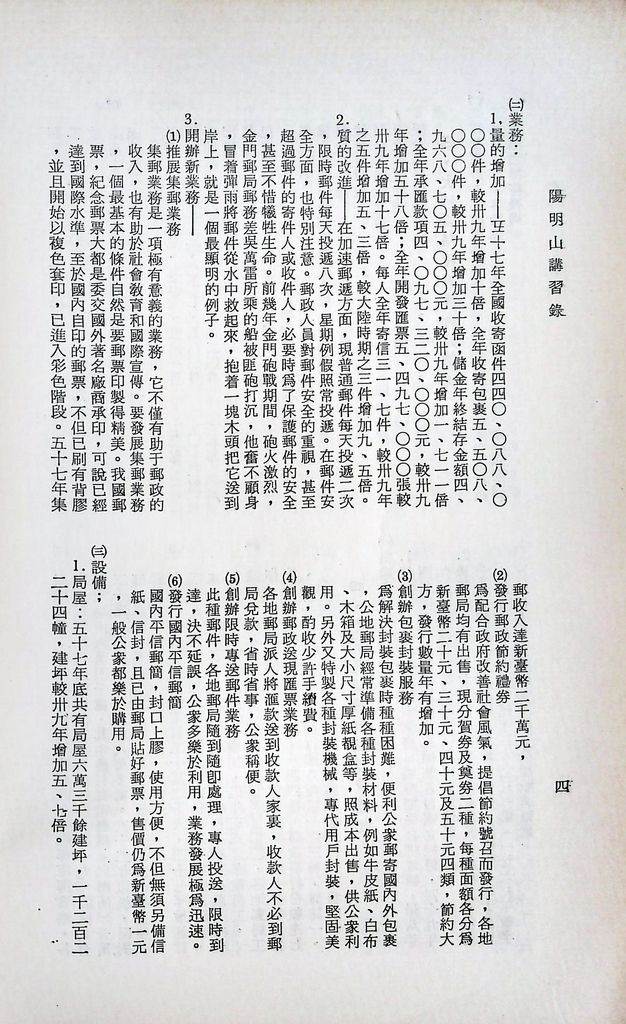 陽明山講習錄
四
㈡業務：
1.量的增加——五十七年全國收寄函件四四〇、〇八八、〇
〇〇件，較卅九年增加十倍，全年收寄包裹五、五〇八、
〇〇〇件，較卅九年增加三十倍；儲金年終結存金額四、
九六八、七〇五、〇〇〇元，較卅九年增加一、七一一倍
；全年承匯款項四、〇九七、三二〇、〇〇〇元，較卅九
年增加五十八倍；全年開發匯票五、四九七、〇〇〇張較
卅九年增加十七倍。每人全年寄信三一、七件，較卅九年
之五件增加五、三倍，較大陸時期之三件增加九、五倍。
2.質的改進——在加速郵遞方面，現普通郵件每天投遞二次
，限時郵件每天投遞八次，星期例假照常投遞。在郵件安
全方面，也特別注意。郵政人員對郵件安全的重視，甚至
超過郵件的寄件人或收件人，必要時爲了保護郵件的安全
，甚至不惜犧牲生命。前幾年金門砲戰期間，砲火激烈，
金門郵局郵務差吳萬雷所乘的船被匪砲打沉，他奮不顧身
，冒着彈雨將郵件從水中救起來，抱着一塊木頭把它送到
岸上，就是一個最顯明的例子。
3.開辦新業務——
⑴推展集郵業務
集郵業務是一項極有意義的業務，它不僅有助于郵政的
收入，也有助於社會敎育和國際宣傳。要發展集郵業務
，一個最基本的條件自然是要郵票印製得精美。我國郵
票，紀念郵票大都是委交國外著名廠商承印，可說已經
達到國際水準，至於國內自印的郵票，不但已刷有背膠
，並且開始以複色套印，已進入彩色階段。五十七年集
郵收入達新臺幣二千萬元，
⑵發行郵政節約禮券
爲配合政府改善社會風氣，提倡節約號召而發行，各地
郵局均有出售，現分賀券及奠券二種，每種面額各分爲
新臺幣二十元、三十元、四十元及五十元四類，節約大
方，發行數量年有增加。
⑶創辦包裹封裝服務
爲解決封裝包裹時種種困難，便利公衆郵寄國內外包裹
，公地郵局經常準備各種封裝材料，例如牛皮紙、白布
、木箱及大小尺寸厚紙襯盒等，照成本出售，供公衆利
用。另外又特製各種封裝機械，專代用戶封裝，堅固美
觀，酌收少許手續費。
⑷創辦郵政送現匯票業務
各地郵局派人將匯款送到收款人家裏，收款人不必到郵
局兌款，省時省事，公衆稱便。
⑸創辦限時專送郵件業務
此種郵件，各地郵局隨到隨卽處理，專人投送，限時到
達，決不延誤，公衆多樂於利用，業務發展極爲迅速。
⑹發行國內平信郵簡
國內平信郵簡，封口上膠，使用方便，不但無須另備信
紙、信封，且已由郵局貼好郵票，售價仍爲新臺幣一元
，一般公衆都樂於購用。
㈢設備；
1.局屋：五十七年底共有局屋六萬三千餘建坪，一千二百二
二十四幢，建坪較卅九年增加五、七倍。